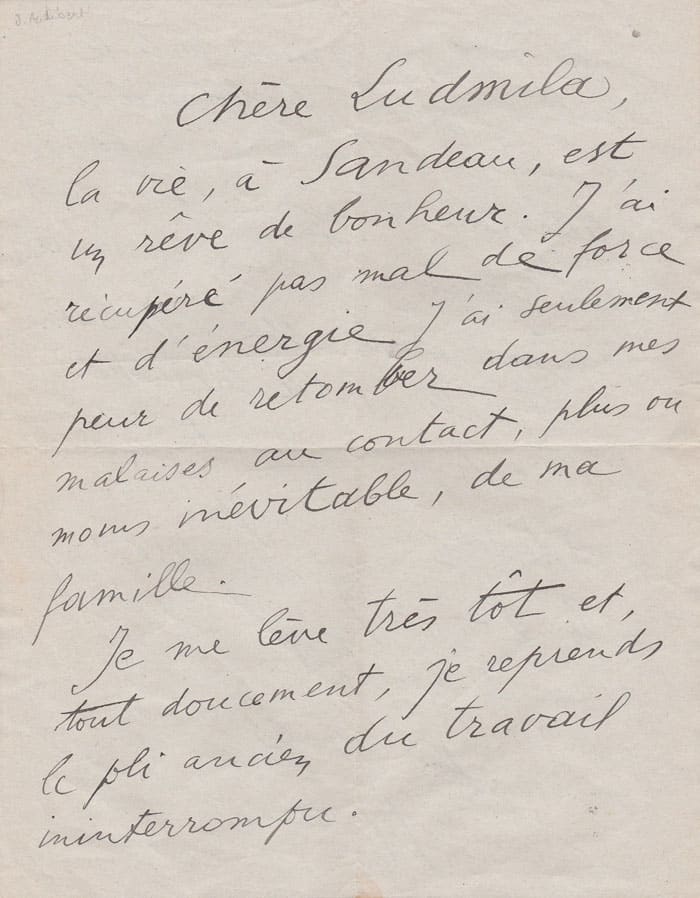 J. Audiberti
Chère Ludmila,
la vie, à Sandeau, est
un rêve de bonheur. J'ai
récupéré pas mal de force
et d'énergie. J'ai seulement
peur de retomber dans mes
malaises au contact, plus ou
moins inévitable, de ma
famille.
Je me lève très tôt et,
tout doucement, je reprends
le pli ancien du travail
ininterrompu.